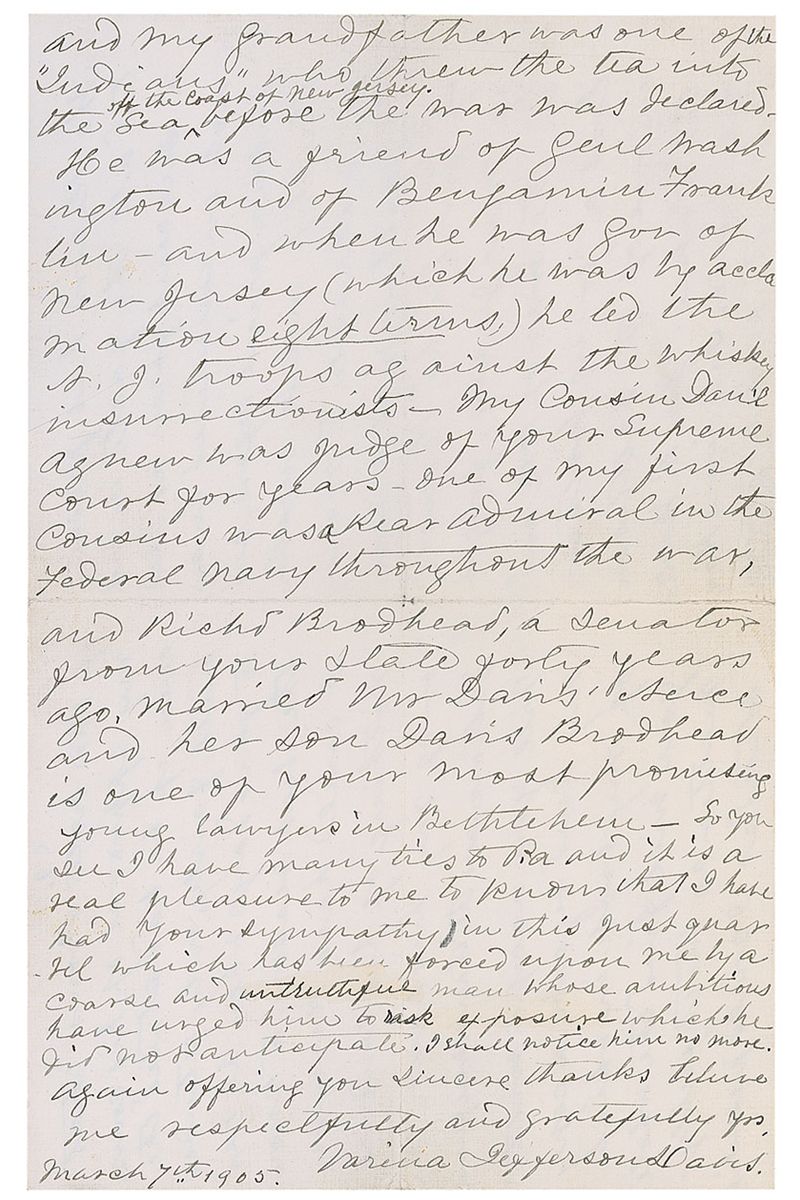 and my grandfather was one of the
"Indians" who threw the tea into
off the Coast of New Jersey.
the Sea ^ before the war was declared.
He was a friend of Genl Wash
ington and of Benjamin Frank
lin – and when he was Gov of
New Jersey (which he was by accla
mation eight terms,) he led the
N. J. troops against the whiskey
insurrectionists – My Cousin Danil
Agnew was judge of your Supreme
Court for years – one of my first
Cousins was a Rear Admiral in the
Federal Navy throughout the war,
and Richd Brodhead, a Senator
from your State forty years
ago, married Mr Davis' Niece
and her son Davis Brodhead
is one of your most promising
young lawyers in Bethlehem – So you
see I have many ties to Pa and it is a
real pleasure to me to know that I have
had your sympathy in this just quar
rel which has been forced upon me by a
coarse and untruthful man whose ambitions
have urged him to risk exposure which he
did not anticipate. I shall notice him no more.
Again offering you sincere thanks believe
me respectfully and gratefully yrs,
Varina Jefferson Davis.
March 7th 1905.